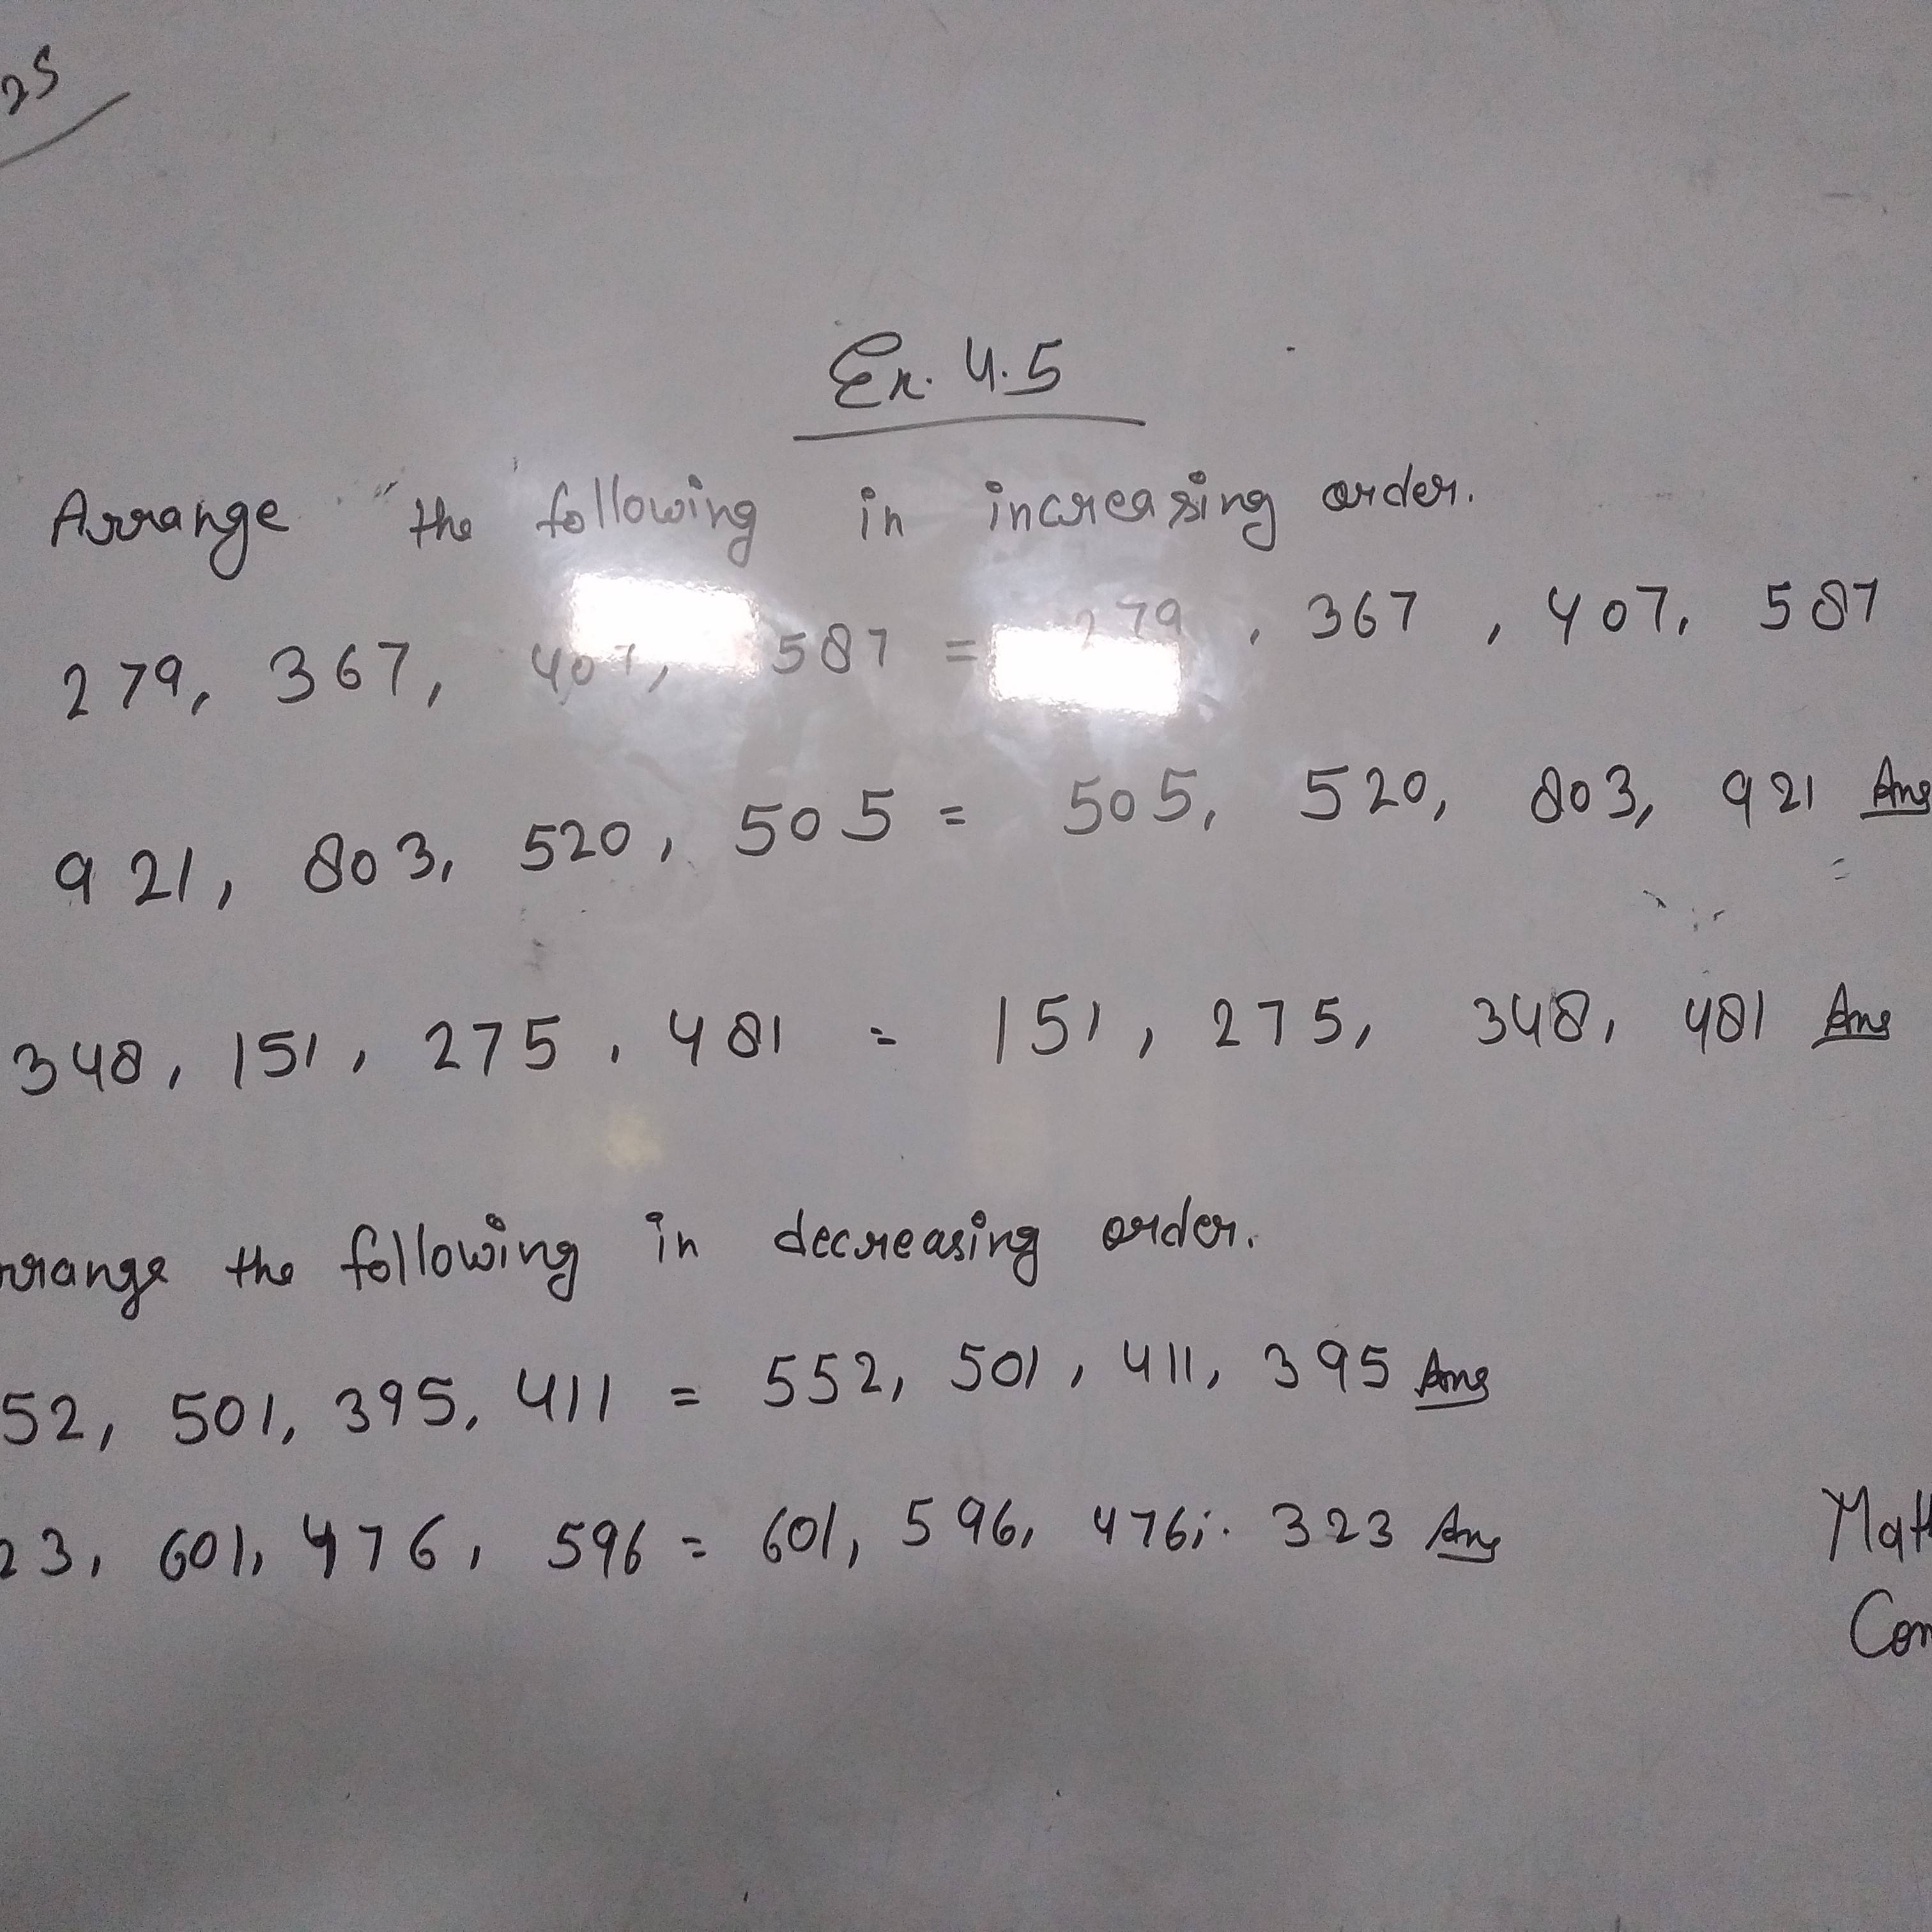 25
Ex. 4.5
Arrange the following in increasing order.
279, 367, 407, 587 = 279, 367, 407, 587
921, 803, 520, 505 = 505, 520, 803, 921 Ans
348, 151, 275, 481 = 151, 275, 348, 481 Ans
rrange the following in decreasing order.
52, 501, 395, 411 = 552, 501, 411, 395 Ans
23, 601, 476, 596 = 601, 596, 476, 323 Ans
Math
Com